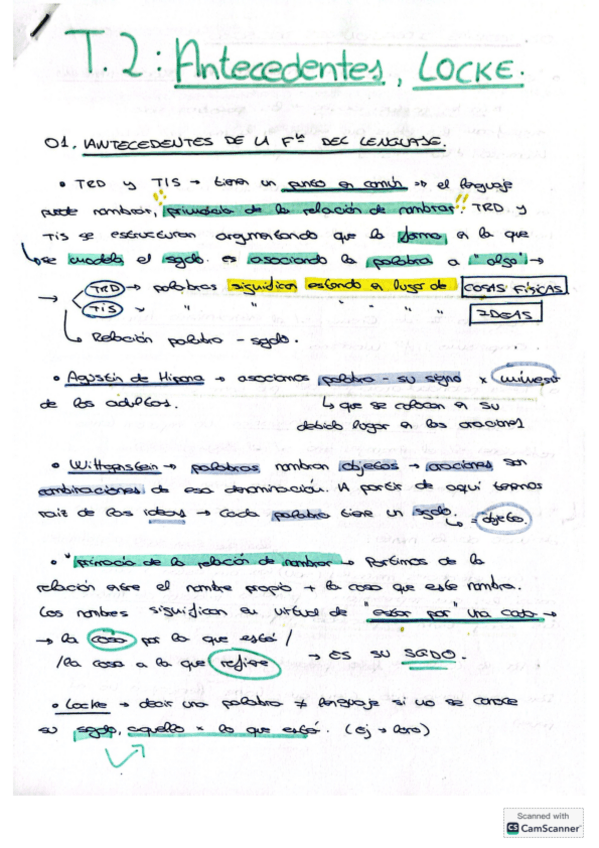 T.2: Antecedentes, LOCKE.
01. ANTECEDENTES DE LA Fía DEL LENGUAJE.
• TRD y TIS → tienen un punto en común ⇒ el lenguaje
puede nombrar, "primacía de la relación de nombrar"!! TRD y
TIS se estructuran argumentando que la forma en la que
se modela el sgdo. es asociando la palabra a "algo" →
→ TRD → palabras significan estando en lugar de COSAS FÍSICAS
TIS " " " " " " IDEAS
↳ Relación palabra - sgdo.
• Agustín de Hipona → asociamos palabra - su signo x imitación
de los adultos. ↳ que se colocan en su
debido lugar en las oraciones
• Wittgenstein → palabras nombran objetos → oraciones son
combinaciones de esa denominación. A partir de aquí tenemos
raíz de las ideas → Cada palabra tiene un sgdo.
↳ = objeto.
• "primacía de la relación de nombrar → Partimos de la
relación entre el nombre propio + la cosa que este nombra.
Los nombres significan en virtud de "estar por" una cosa →
→ la cosa por la que está /
/ la cosa a la que refiere → ES SU SGDO.
• Locke → decir una palabra ≠ lenguaje si no se conoce
su sgdo, aquello x lo que está. (ej → loro)
Scanned with
CS CamScanner